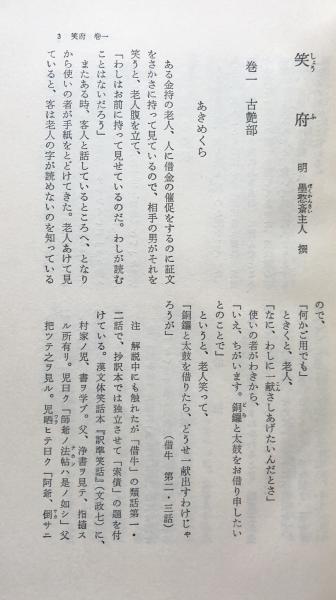 3　笑府　巻一
笑府
しょう　ふ
明　墨憨斎主人　撰
ぼくかんさい
巻一　古艶部
あきめくら
ある金持の老人、人に借金の催促をするのに証文
をさかさに持って見ているので、相手の男がそれを
笑うと、老人腹を立て、
「わしはお前に持って見せているのだ。わしが読む
ことはないだろう」
またある時、客人と話しているところへ、となり
から使いの者が手紙をとどけてきた。老人あけて見
ていると、客は老人の字が読めないのを知っている
ので、
「何かご用でも」
ときくと、老人、
「なに、わしに一献さしあげたいんだとさ」
こん
使いの者がわきから、
「いえ、ちがいます。銅鑼と太鼓をお借り申したい
どら
とのことで」
というと、老人笑って、
「銅鑼と太鼓を借りたら、どうせ一献出すわけじゃ
ろうが」
（借牛　第二・三話）
注　解説中にも触れたが「借牛」の類話第一・
二話で、抄訳本では独立させて「索債」の題を付
けている。漢文体笑話本『訳準笑話』（文政七）に、
村家ノ児、書ヲ学ブ。父、浄書ヲ見テ、指摘ス
ル所有リ。児曰ク「師爺ノ法帖ハ是ノ如シ」父
把ツテ之ヲ見ル。児晒ヒテ曰ク「阿爺、倒サニ